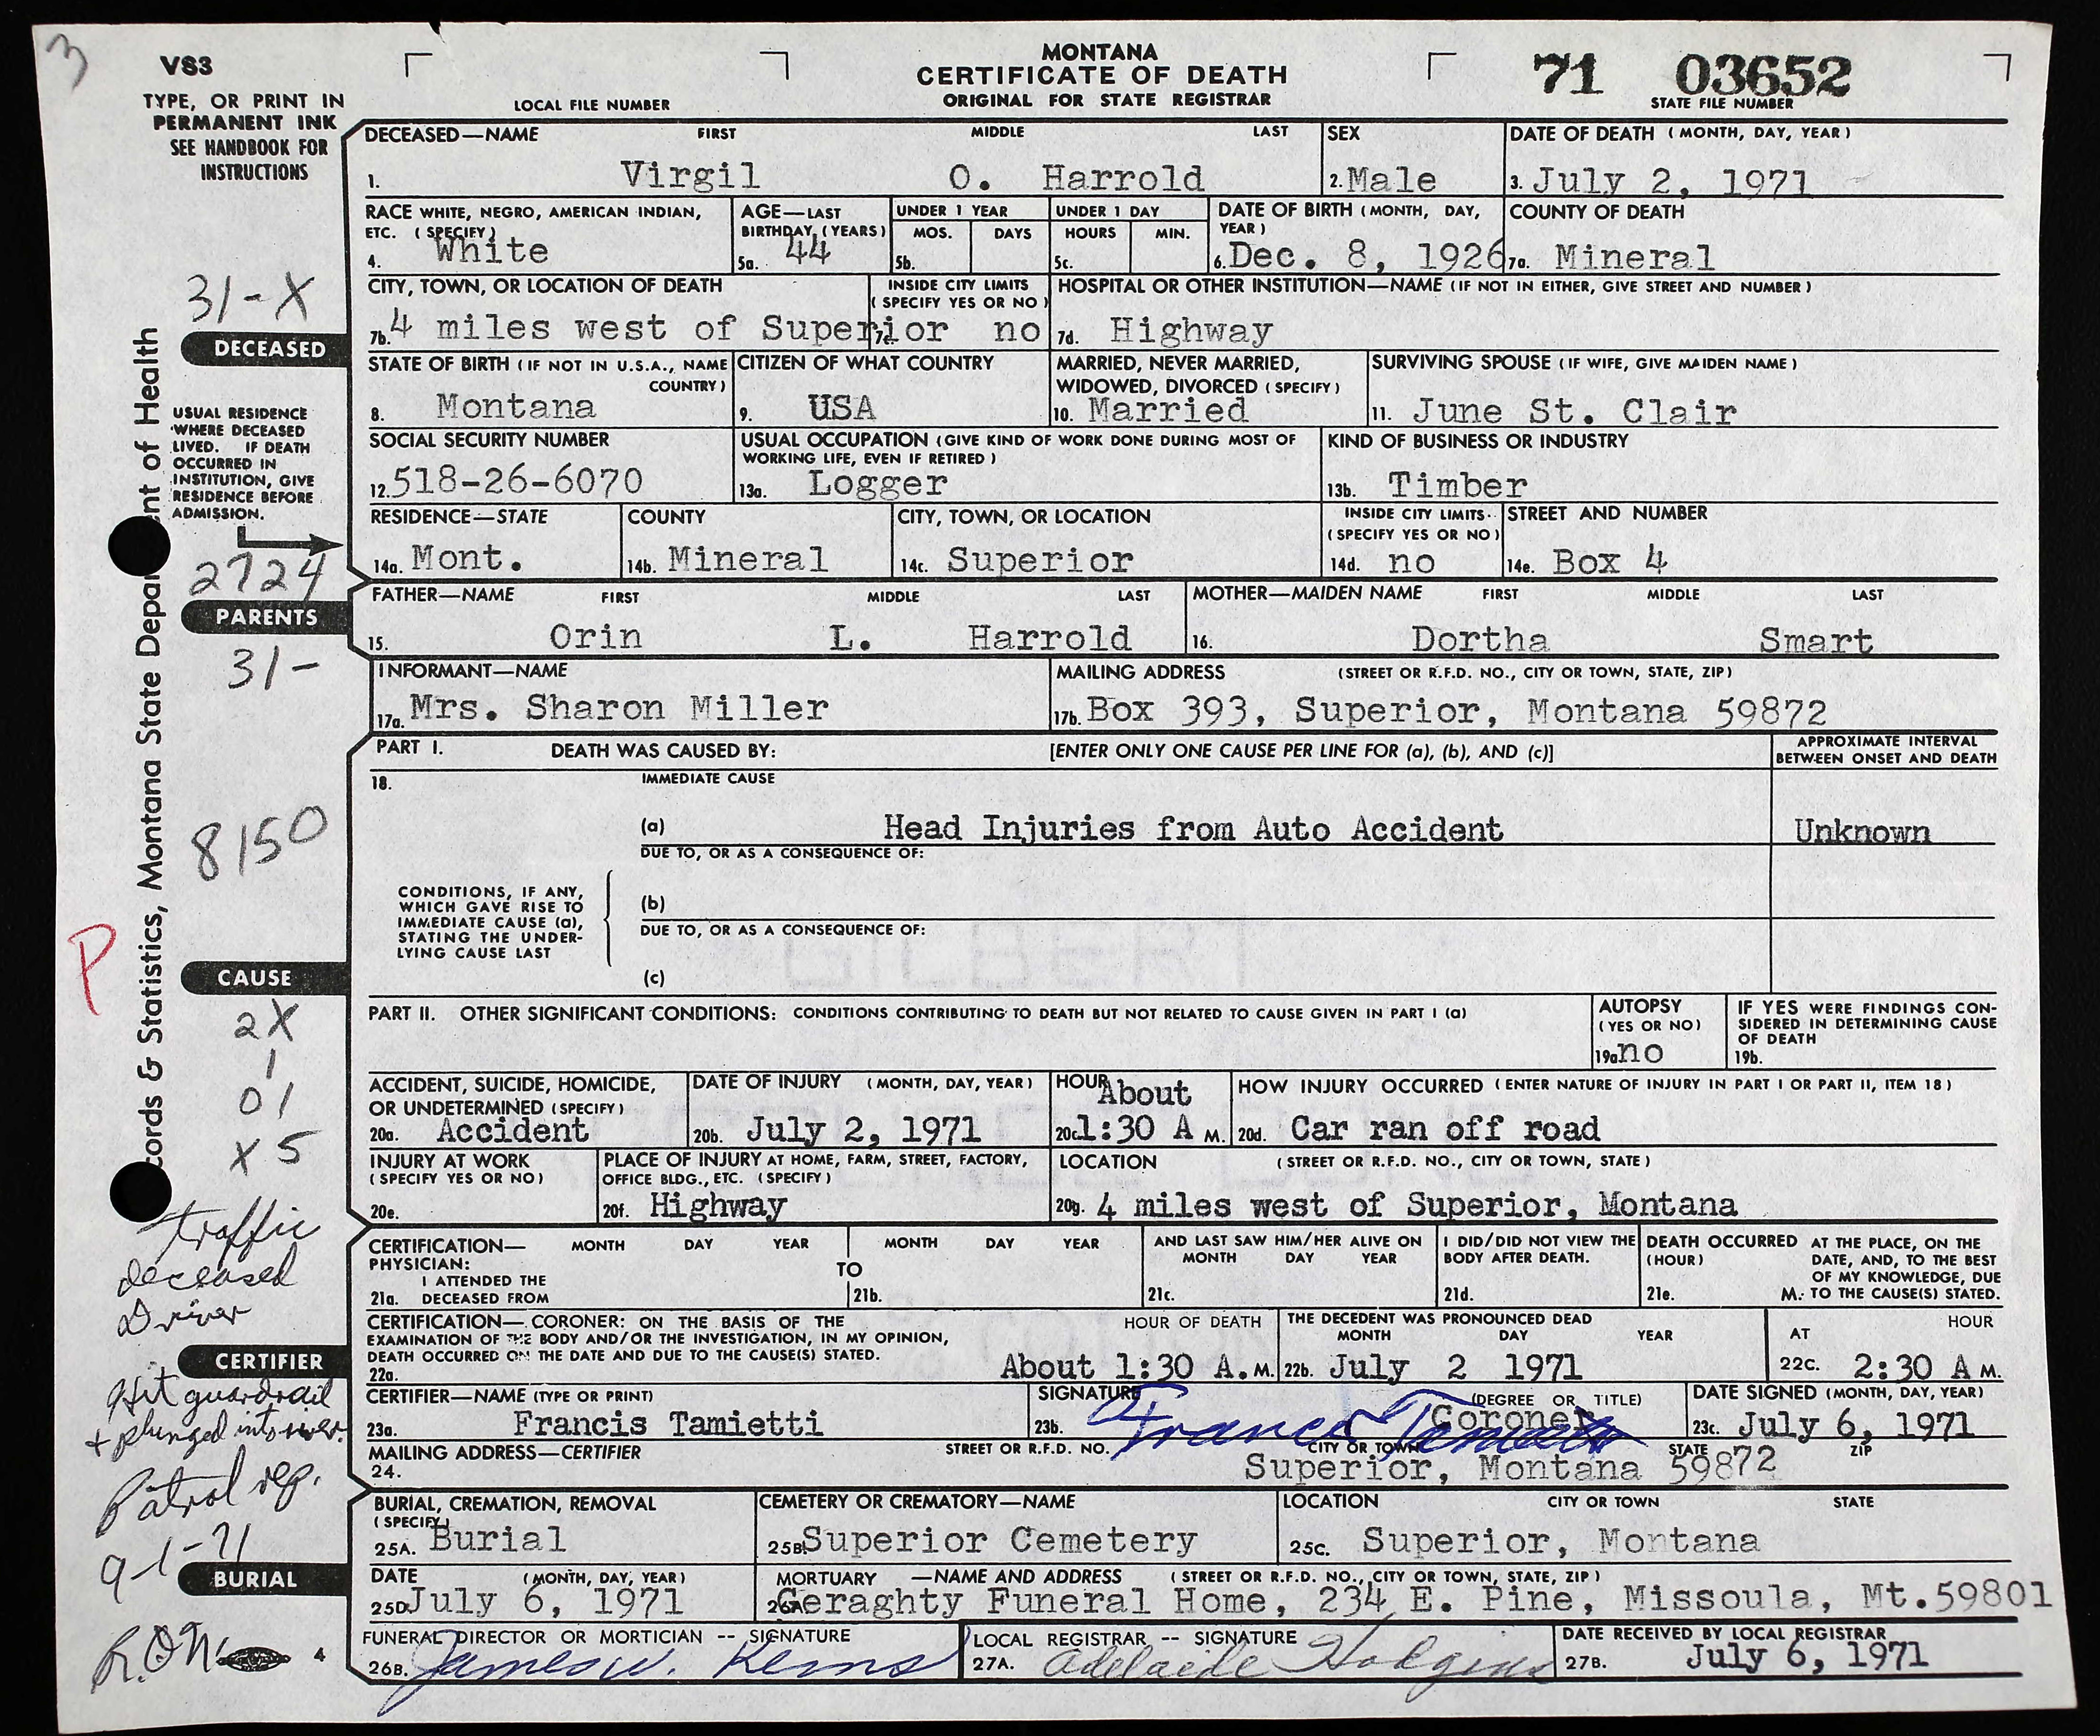 3
VS3
TYPE, OR PRINT IN
PERMANENT INK
SEE HANDBOOK FOR
INSTRUCTIONS
LOCAL FILE NUMBER
MONTANA
CERTIFICATE OF DEATH
ORIGINAL FOR STATE REGISTRAR
71 03652
STATE FILE NUMBER
DECEASED—NAME FIRST MIDDLE LAST
1. Virgil O. Harrold
SEX
2. Male
DATE OF DEATH (MONTH, DAY, YEAR)
3. July 2, 1971
RACE WHITE, NEGRO, AMERICAN INDIAN,
ETC. (SPECIFY)
4. White
AGE—LAST
BIRTHDAY (YEARS)
5a. 44
UNDER 1 YEAR
MOS. DAYS
5b.
UNDER 1 DAY
HOURS MIN.
5c.
DATE OF BIRTH (MONTH, DAY,
YEAR)
6. Dec. 8, 1926
COUNTY OF DEATH
7a. Mineral
31-X
DECEASED
CITY, TOWN, OR LOCATION OF DEATH
7b. 4 miles west of Superior
INSIDE CITY LIMITS
(SPECIFY YES OR NO)
7c. no
HOSPITAL OR OTHER INSTITUTION—NAME (IF NOT IN EITHER, GIVE STREET AND NUMBER)
7d. Highway
STATE OF BIRTH (IF NOT IN U.S.A., NAME
COUNTRY)
8. Montana
CITIZEN OF WHAT COUNTRY
9. USA
MARRIED, NEVER MARRIED,
WIDOWED, DIVORCED (SPECIFY)
10. Married
SURVIVING SPOUSE (IF WIFE, GIVE MAIDEN NAME)
11. June St. Clair
USUAL RESIDENCE
WHERE DECEASED
LIVED. IF DEATH
OCCURRED IN
INSTITUTION, GIVE
RESIDENCE BEFORE
ADMISSION.
SOCIAL SECURITY NUMBER
12. 518-26-6070
USUAL OCCUPATION (GIVE KIND OF WORK DONE DURING MOST OF
WORKING LIFE, EVEN IF RETIRED)
13a. Logger
KIND OF BUSINESS OR INDUSTRY
13b. Timber
RESIDENCE—STATE
14a. Mont.
COUNTY
14b. Mineral
CITY, TOWN, OR LOCATION
14c. Superior
INSIDE CITY LIMITS
(SPECIFY YES OR NO)
14d. no
STREET AND NUMBER
14e. Box 4
2724
PARENTS
31-
FATHER—NAME FIRST MIDDLE LAST
15. Orin L. Harrold
MOTHER—MAIDEN NAME FIRST MIDDLE LAST
16. Dortha Smart
INFORMANT—NAME
17a. Mrs. Sharon Miller
MAILING ADDRESS (STREET OR R.F.D. NO., CITY OR TOWN, STATE, ZIP)
17b. Box 393, Superior, Montana 59872
cords & Statistics, Montana State Depar ent of Health
PART I. DEATH WAS CAUSED BY: [ENTER ONLY ONE CAUSE PER LINE FOR (a), (b), AND (c)]
APPROXIMATE INTERVAL
BETWEEN ONSET AND DEATH
18. IMMEDIATE CAUSE
(a) Head Injuries from Auto Accident Unknown
DUE TO, OR AS A CONSEQUENCE OF:
8150
CONDITIONS, IF ANY,
WHICH GAVE RISE TO
IMMEDIATE CAUSE (a),
STATING THE UNDER-
LYING CAUSE LAST
(b)
DUE TO, OR AS A CONSEQUENCE OF:
(c)
P
CAUSE
2X
1
01
X5
PART II. OTHER SIGNIFICANT CONDITIONS: CONDITIONS CONTRIBUTING TO DEATH BUT NOT RELATED TO CAUSE GIVEN IN PART I (a)
AUTOPSY
(YES OR NO)
19a. no
IF YES WERE FINDINGS CON-
SIDERED IN DETERMINING CAUSE
OF DEATH
19b.
ACCIDENT, SUICIDE, HOMICIDE,
OR UNDETERMINED (SPECIFY)
20a. Accident
DATE OF INJURY (MONTH, DAY, YEAR)
20b. July 2, 1971
HOUR About
20c. 1:30 A M.
HOW INJURY OCCURRED (ENTER NATURE OF INJURY IN PART I OR PART II, ITEM 18)
20d. Car ran off road
INJURY AT WORK
(SPECIFY YES OR NO)
20e.
PLACE OF INJURY AT HOME, FARM, STREET, FACTORY,
OFFICE BLDG., ETC. (SPECIFY)
20f. Highway
LOCATION (STREET OR R.F.D. NO., CITY OR TOWN, STATE)
20g. 4 miles west of Superior, Montana
traffic
deceased
Driver
CERTIFICATION— MONTH DAY YEAR MONTH DAY YEAR
PHYSICIAN: TO
I ATTENDED THE
21a. DECEASED FROM 21b.
AND LAST SAW HIM/HER ALIVE ON
MONTH DAY YEAR
21c.
I DID/DID NOT VIEW THE
BODY AFTER DEATH.
21d.
DEATH OCCURRED AT THE PLACE, ON THE
(HOUR) DATE, AND, TO THE BEST
OF MY KNOWLEDGE, DUE
21e. M. TO THE CAUSE(S) STATED.
CERTIFICATION—CORONER: ON THE BASIS OF THE
EXAMINATION OF THE BODY AND/OR THE INVESTIGATION, IN MY OPINION,
DEATH OCCURRED ON THE DATE AND DUE TO THE CAUSE(S) STATED.
22a.
HOUR OF DEATH
About 1:30 A.M.
THE DECEDENT WAS PRONOUNCED DEAD
MONTH DAY YEAR
22b. July 2 1971
HOUR
AT
22c. 2:30 A M.
CERTIFIER
Hit guardrail
+ plunged into river.
Patrol rep.
9-1-71
CERTIFIER—NAME (TYPE OR PRINT)
23a. Francis Tamietti
SIGNATURE (DEGREE OR TITLE)
23b. Francis Tamietti Coroner
DATE SIGNED (MONTH, DAY, YEAR)
23c. July 6, 1971
MAILING ADDRESS—CERTIFIER STREET OR R.F.D. NO. CITY OR TOWN STATE ZIP
24. Superior, Montana 59872
BURIAL, CREMATION, REMOVAL
(SPECIFY)
25A. Burial
CEMETERY OR CREMATORY—NAME
25B. Superior Cemetery
LOCATION CITY OR TOWN STATE
25C. Superior, Montana
BURIAL
DATE (MONTH, DAY, YEAR)
25D. July 6, 1971
MORTUARY —NAME AND ADDRESS (STREET OR R.F.D. NO., CITY OR TOWN, STATE, ZIP)
26A. Geraghty Funeral Home, 234 E. Pine, Missoula, Mt. 59801
4
FUNERAL DIRECTOR OR MORTICIAN -- SIGNATURE
26B. James W. Kerns
LOCAL REGISTRAR -- SIGNATURE
27A. Adelaide Hodgins
DATE RECEIVED BY LOCAL REGISTRAR
27B. July 6, 1971